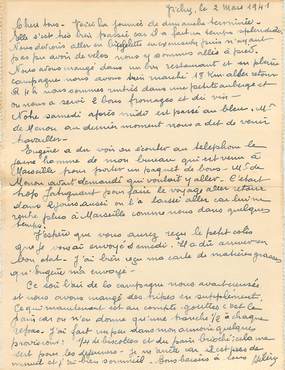 Vichy, le 2 Mars 1941
Chers tous - Voici la journée de dimanche terminée -
Elle s'est très bien passée car il a fait un temps splendide.
Nous devions aller en bicyclette en excursion puis n'ayant
pas pu avoir de vélos nous y sommes allés à pied.
Nous avons mangé dans un bon restaurant et en pleine
campagne nous avons bien marché 18 Km aller retour
A 4 h nous sommes rentrés dans une petite auberge et
on nous a servi 2 bons fromages et du vin -
Notre samedi après midi est passé au bleu. Mr
de Manon au dernier moment nous a dit de venir
travailler -
Eugène a du voir en écouter au téléphone le
jeune homme de mon bureau qui est venu à
Marseille pour porter un paquet de bons. Mr de
Manon avait demandé qui voulait y aller. C'était
trop fatiguant pour faire le voyage aller retour
dans 2 jours aussi on l'a laissé aller car lui ne
rentre plus à Marseille comme nous dans quelques
temps.
J'espère que vous aurez reçu le petit colis
que je vous ai envoyé samedi. Il a dû arriver en
bon état - J'ai bien reçu ma carte de matières grasses
qu'Eugène m'a envoyé -
Ce soir l'air de la campagne nous avait creusés
et nous avons mangé des tripes en supplément.
Ce qui maintenant est au compte gouttes c'est le
pain car on n'en donne qu'une tranche à chaque
repas. J'ai fait un peu dans mon armoire quelques
provisions : des biscottes et du pain brioché : cela me
sert pour les déjeuners - Je m'arrête car il est près de
minuit et j'ai bien sommeil. Bons baisers à tous